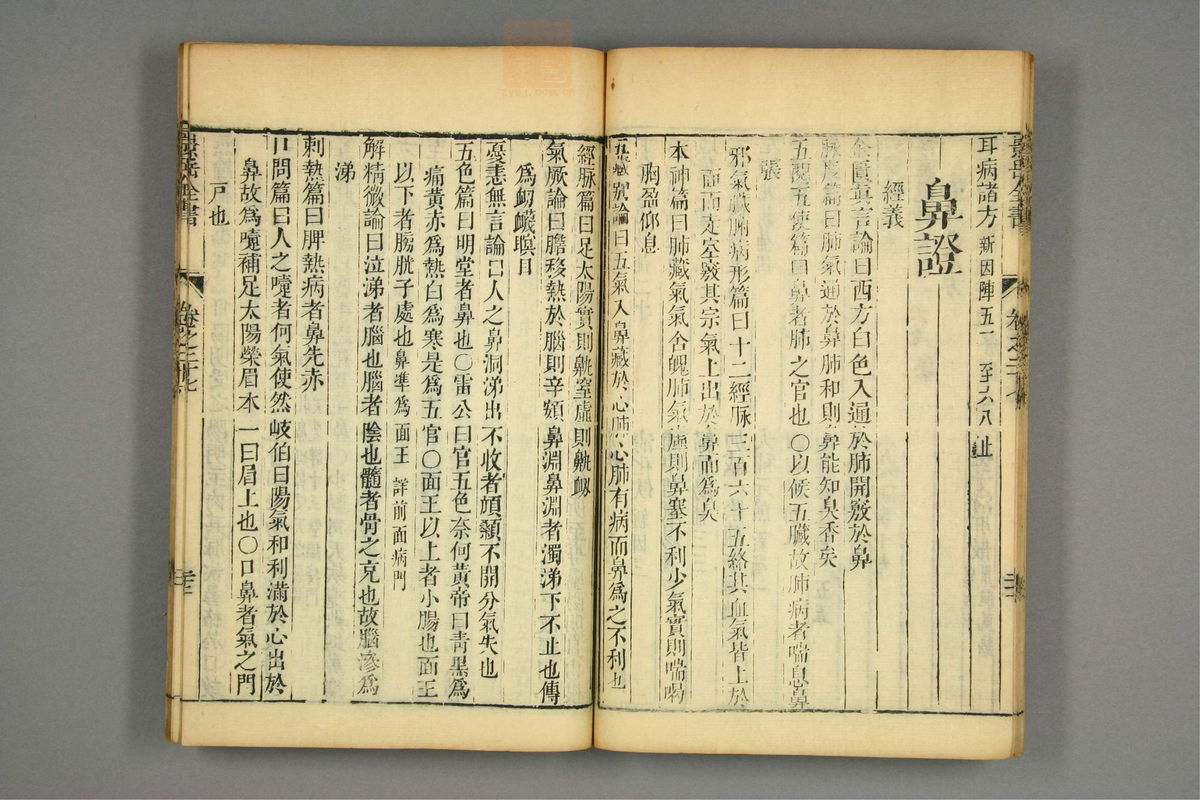 耳病諸方 新因陣五 至六八止
鼻證
經義
金匱眞言論曰西方白色入通於肺開竅於鼻
脉度篇曰肺氣通於鼻肺和則鼻能知臭香矣
五閱五使篇曰鼻者肺之官也〇以候五臟故肺病者喘息鼻
張
邪氣臟腑病形篇曰十二經脉三百六十五絡其血氣皆上於
面而走空竅其宗氣上出於鼻而爲臭
本神篇曰肺藏氣氣舍魄肺氣虛則鼻塞不利少氣實則喘喝
胸盈仰息
五臟別論曰五氣入鼻藏於心肺心肺有病而鼻爲之不利也
經脉篇曰足太陽實則鼽窒虛則鼽衂
氣厥論曰膽移熱於腦則辛頞鼻淵鼻淵者濁涕下不止也傳
爲衂衊瞑目
憂恚無言論曰人之鼻洞涕出不收者頏顙不開分氣失也
五色篇曰明堂者鼻也〇雷公曰官五色奈何黃帝曰靑黑爲
痛黃赤爲熱白爲寒是爲五官〇面王以上者小腸也面王
以下者膀胱子處也鼻準爲面王 詳前面病門
解精微論曰泣涕者腦也腦者陰也髓者骨之充也故腦滲爲
涕
刺熱篇曰脾熱病者鼻先赤
口問篇曰人之嚏者何氣使然岐伯曰陽氣和利滿於心出於
鼻故爲嚏補足太陽榮眉本一曰眉上也〇口鼻者氣之門
戸也